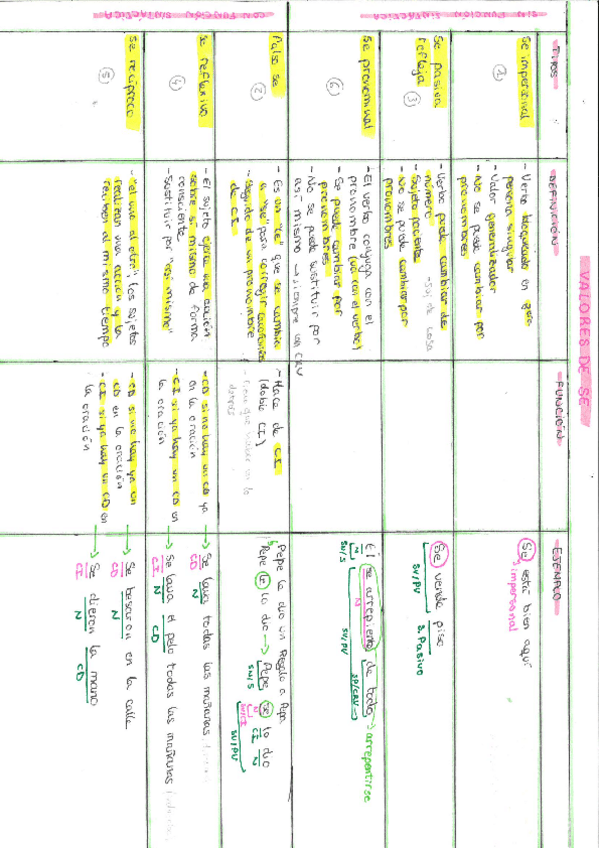 VALORES DE SE
TIPOS
DEFINICIÓN
FUNCIÓN
EJEMPLO
SIN FUNCIÓN SINTÁCTICA
Se impersonal
1
- Verbo bloqueado en 3ª
persona singular
- Valor generalizador
- No se puede cambiar por
pronombres
Se está bien aquí
impersonal
Se pasiva
refleja
3
- Verbo puede cambiar de
número
- Suj de cosa
- Sujeto paciente
- No se puede cambiar por
pronombres
Se vende piso
SV/PV
S. Pasivo
Se pronominal
6
- El verbo conjuga con el
pronombre (va con el verbo)
- Se puede cambiar por
pronombres
- No se puede sustituir por
así mismo → siempre un CRV
Él se arrepiente de todo → arrepentirse
N
N
SN/S
SP/CRV
SV/PV
CON FUNCIÓN SINTÁCTICA
Falso se
2
- Es un "le" que se cambia
a "se" para corregir
- Seguido de un pronombre
de CI
- Hace de CI
(doble CI)
Pepe le dio un Regalo a Pepa
Pepe le lo dio → Pepe se lo dio
SN/S
N
CI
N
SN/CI
SV/PV
Se reflexivo
4
- El sujeto ejerce una acción
sobre si mismo de forma
consciente
- Sustituir por "así mismo"
- CD si no hay ya
en la oración
- CI si ya hay un CD en
la oración
→ Se lava todas las mañanas
CD
N
→ Se lava el pelo todas las mañanas
CI
N
CD
Se recíproco
5
- "el uno al otro", los sujetos
realizan una acción y la
reciben al mismo tiempo
- CD si no hay ya un
CD en la oración
- CI si ya hay un CD en
la oración
→ Se besaron en la calle
CD
N
→ Se dieron la mano
CI
N
CD